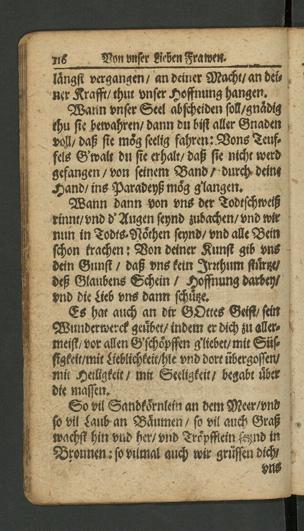 116 Von vnser Lieben Frawen.
längst vergangen / an deiner Macht / an dei-
ner Krafft / thut vnser Hoffnung hangen.
Wann vnser Seel abscheiden soll / gnädig
thu sie bewahren / dann du bist aller Gnaden
voll / daß sie mög seelig fahren: Vons Teuf-
fels G'walt du sie erhalt / daß sie nicht werd
gefangen / von seinem Band / durch deine
Hand / ins Paradeyß mög g'langen.
Wann dann von vns der Todtschweiß
rinnt / vnd d' Augen seynd zubachen / vnd wir
nun in Todts-Nöthen seynd / vnd alle Bein
schon krachen: Von deiner Kunst gib vns
dein Gunst / daß vns kein Irrthum stürtze /
deß Glaubens Schein / Hoffnung darbey /
vnd die Lieb vns dann schütze.
Es hat auch an dir GOttes Geist / sein
Wunderwerck geübet / indem er dich zu aller-
meist / vor allen G'schöpffen g'liebet / mit Süs-
sigkeit / mit Lieblichkeit / hie vnd dort übergossen /
mit Heiligkeit / mit Seeligkeit / begabt über
die massen.
So vil Sandkörnlein an dem Meer / vnd
so vil Laub an Bäumen / so vil auch Graß
wachst hin vnd her / vnd Tröpfflein seynd in
Bronnen: so vilmal auch wir grüssen dich /
vns